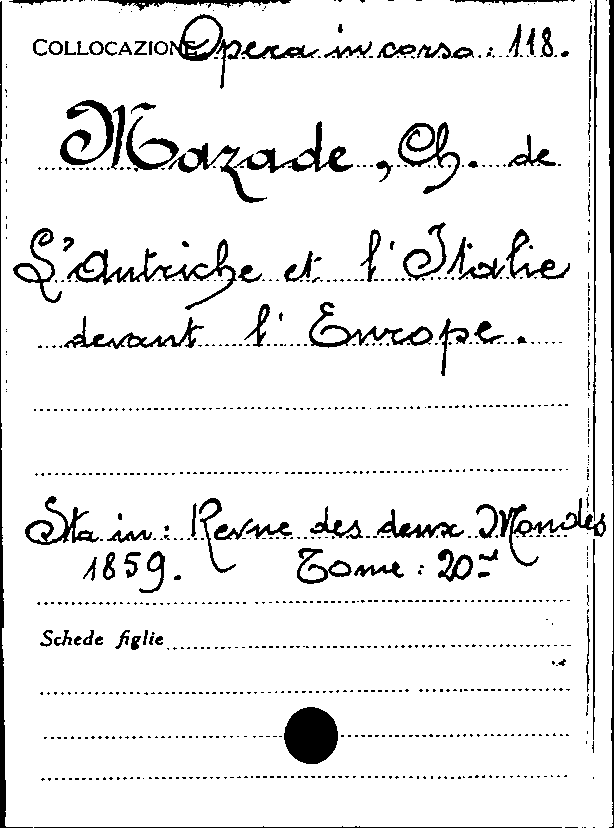 COLLOCAZIONE Opera in corso: 118.
Mazade, Ch. de
L'Autriche et l'Italie
devant l'Europe.
Sta in: Revue des deux Mondes
1859. Tome: 20
Schede figlie